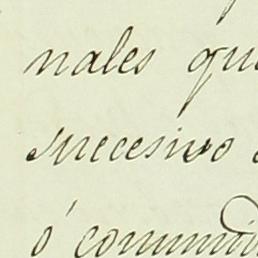 nales qu
sucesivo
ó comuni